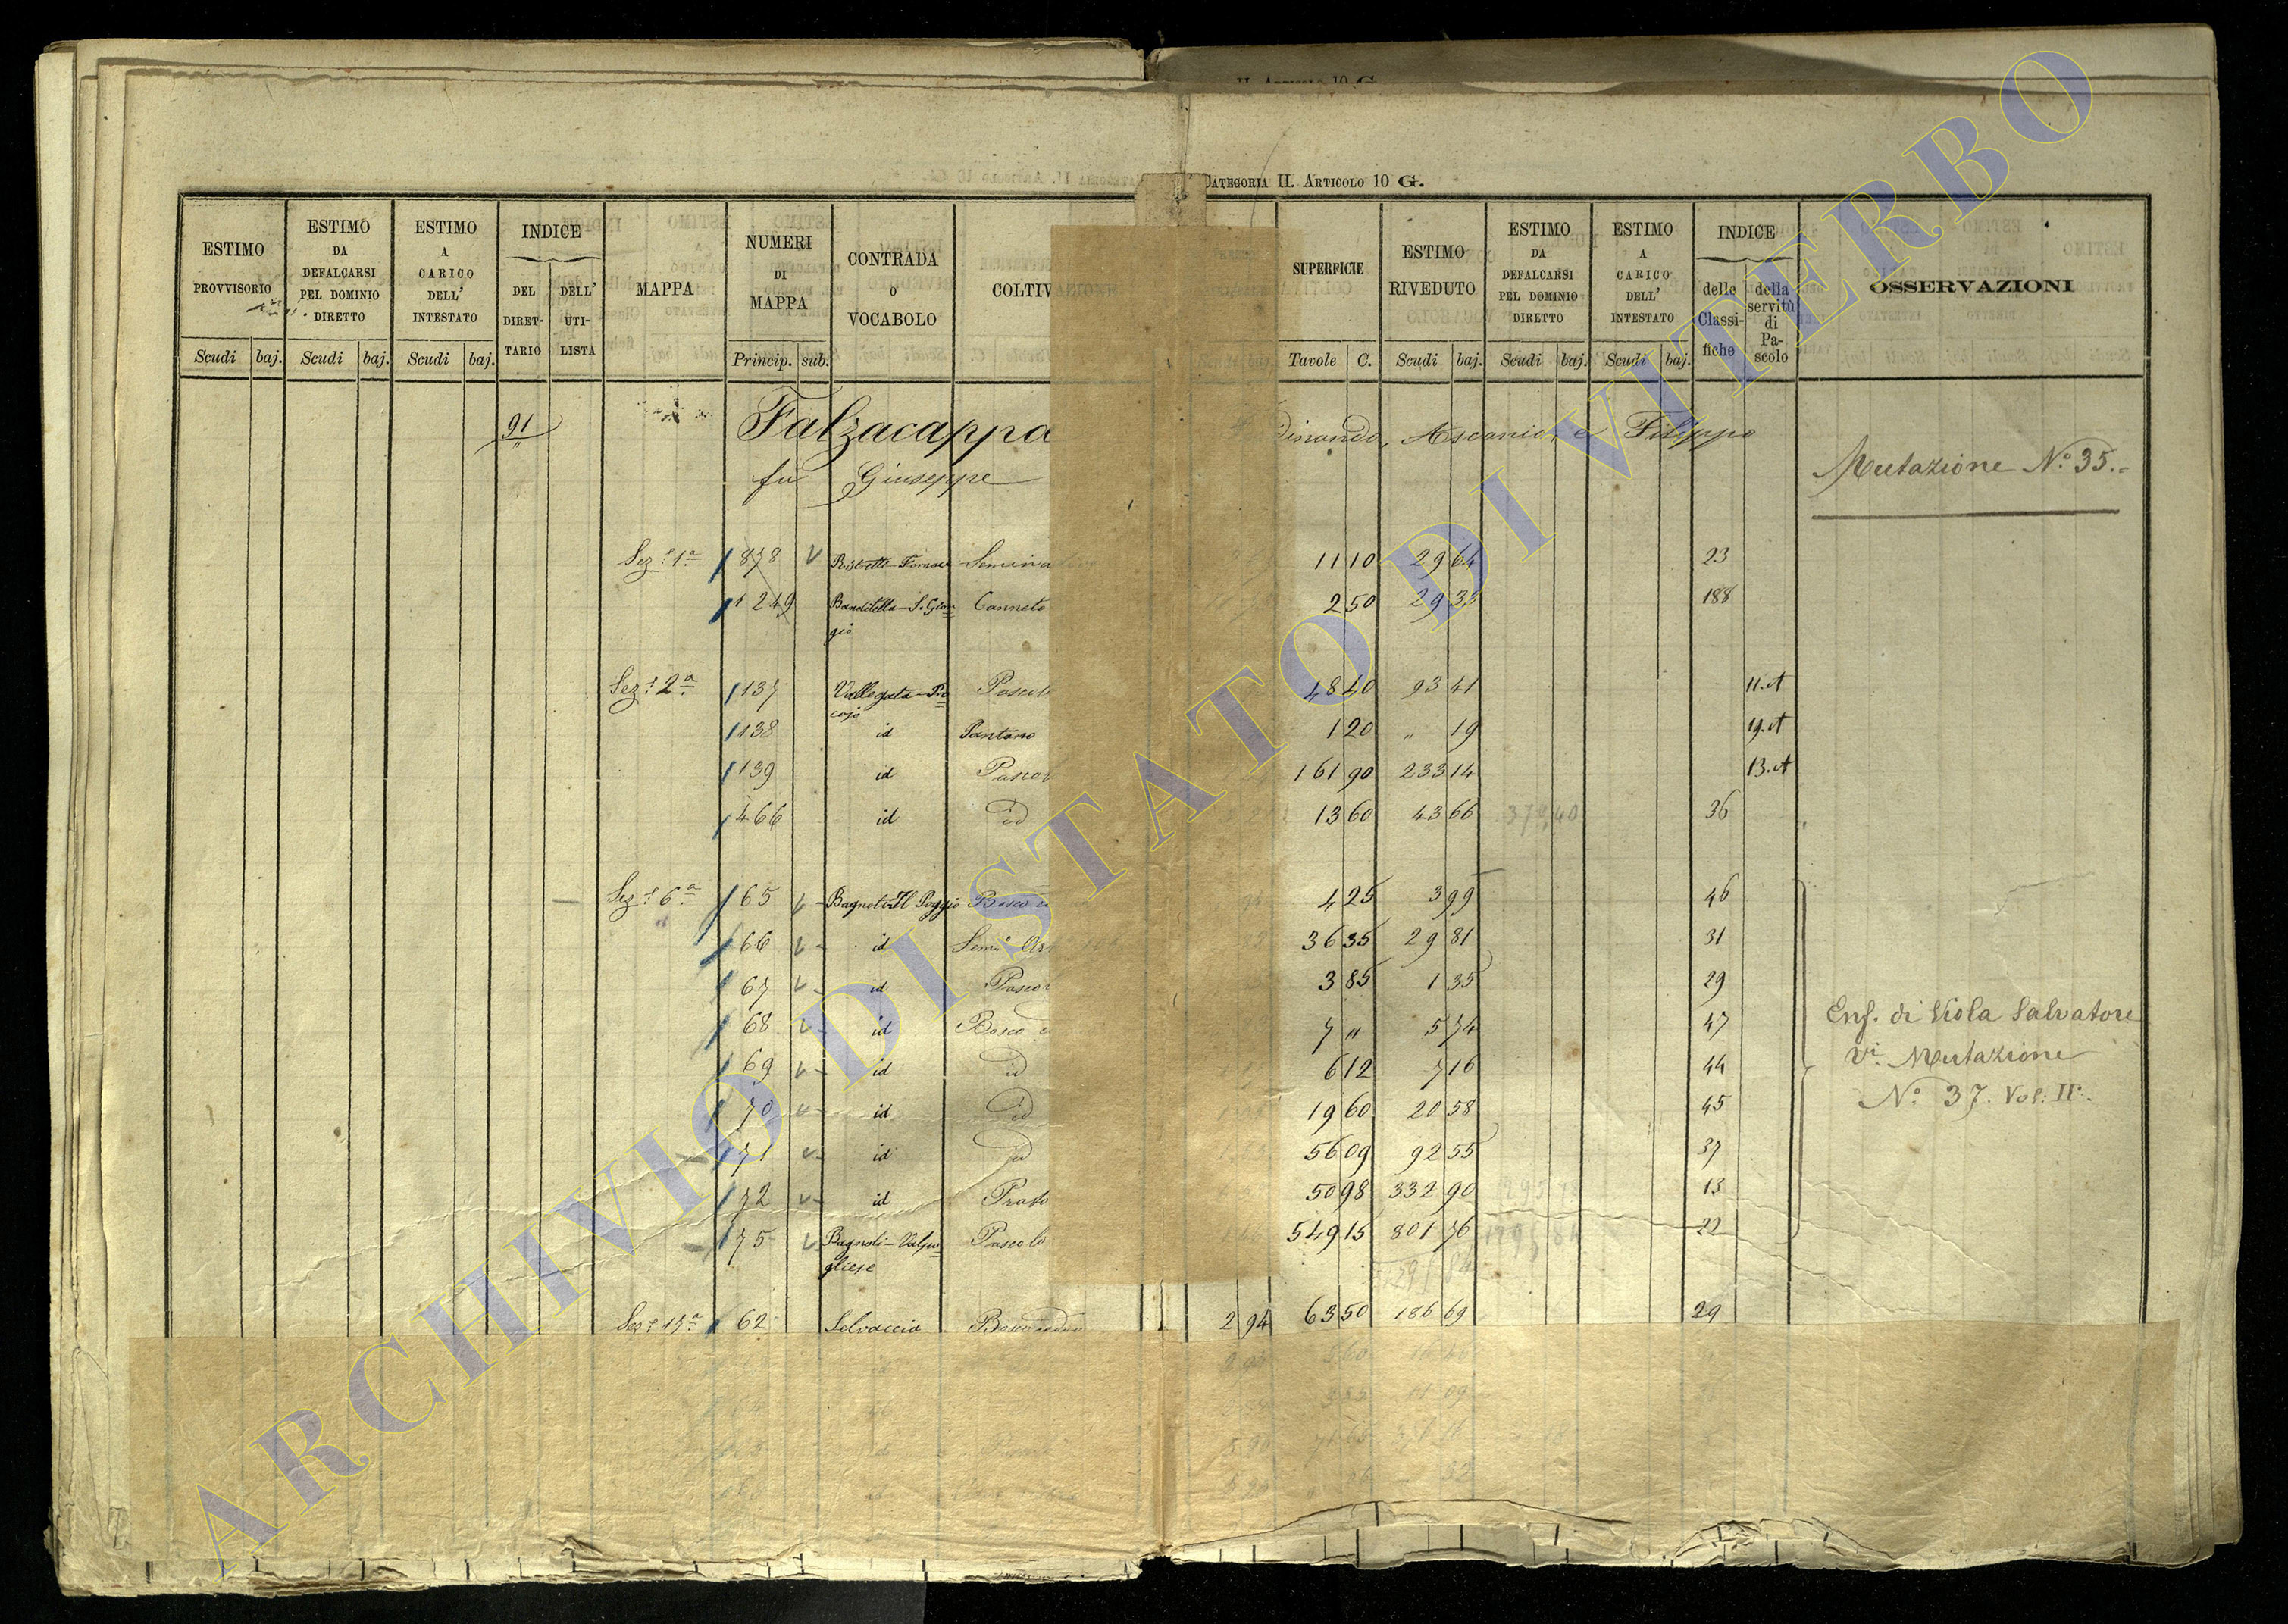 CATEGORIA II. ARTICOLO 10 G.
ESTIMO PROVVISORIO Scudi baj.
ESTIMO DA DEFALCARSI PEL DOMINIO DIRETTO Scudi baj.
ESTIMO A CARICO DELL' INTESTATO Scudi baj.
INDICE DEL DIRET-TARIO DELL' UTI-LISTA
MAPPA
NUMERI DI MAPPA Princip. sub.
CONTRADA O VOCABOLO
COLTIVAZIONE
SUPERFICIE Tavole C.
ESTIMO RIVEDUTO Scudi baj.
ESTIMO DA DEFALCARSI PEL DOMINIO DIRETTO Scudi baj.
ESTIMO A CARICO DELL' INTESTATO Scudi baj.
INDICE delle Classi-fiche della servitù di Pa-scolo
OSSERVAZIONI
91 Falzacappa dinando, Ascanio, e Filippo
fu Giuseppe
Mutazione N.° 35.=
Sez.e 1a 878 Seminativo 11 10 29 64 23
1249 Banditella - S. Gior= Canneto 2 50 29 188
gio
Sez.e 2a 137 Pascolo 48 40 93 41 11.A
138 id Pantano 1 20 " 19 19.A
139 id Pasco 161 90 233 14 13.A
466 id id 13 60 43 66 379,40 36
Sez.e 6a 65 Il Poggio Bosco 4 25 3 99 46
66 id Sem.o 36 35 29 81 31
67 id Pasco 3 85 1 35 29
68 id Bosco 7 " 5 74 47
69 id id 6 12 7 16 44
70 id id 19 60 20 58 45
71 id id 56 09 92 55 37
72 id Prato 50 98 332 90 13
75 Bagnoli - Pascolo 549 15 801 76 22
gliese
Enf. di Viola Salvatore
Vi. Mutazione
N.° 37. Vol: II.
62 Selvaccia 2 94 63 50 186 69 29
ARCHIVIO DI STATO DI VITERBO